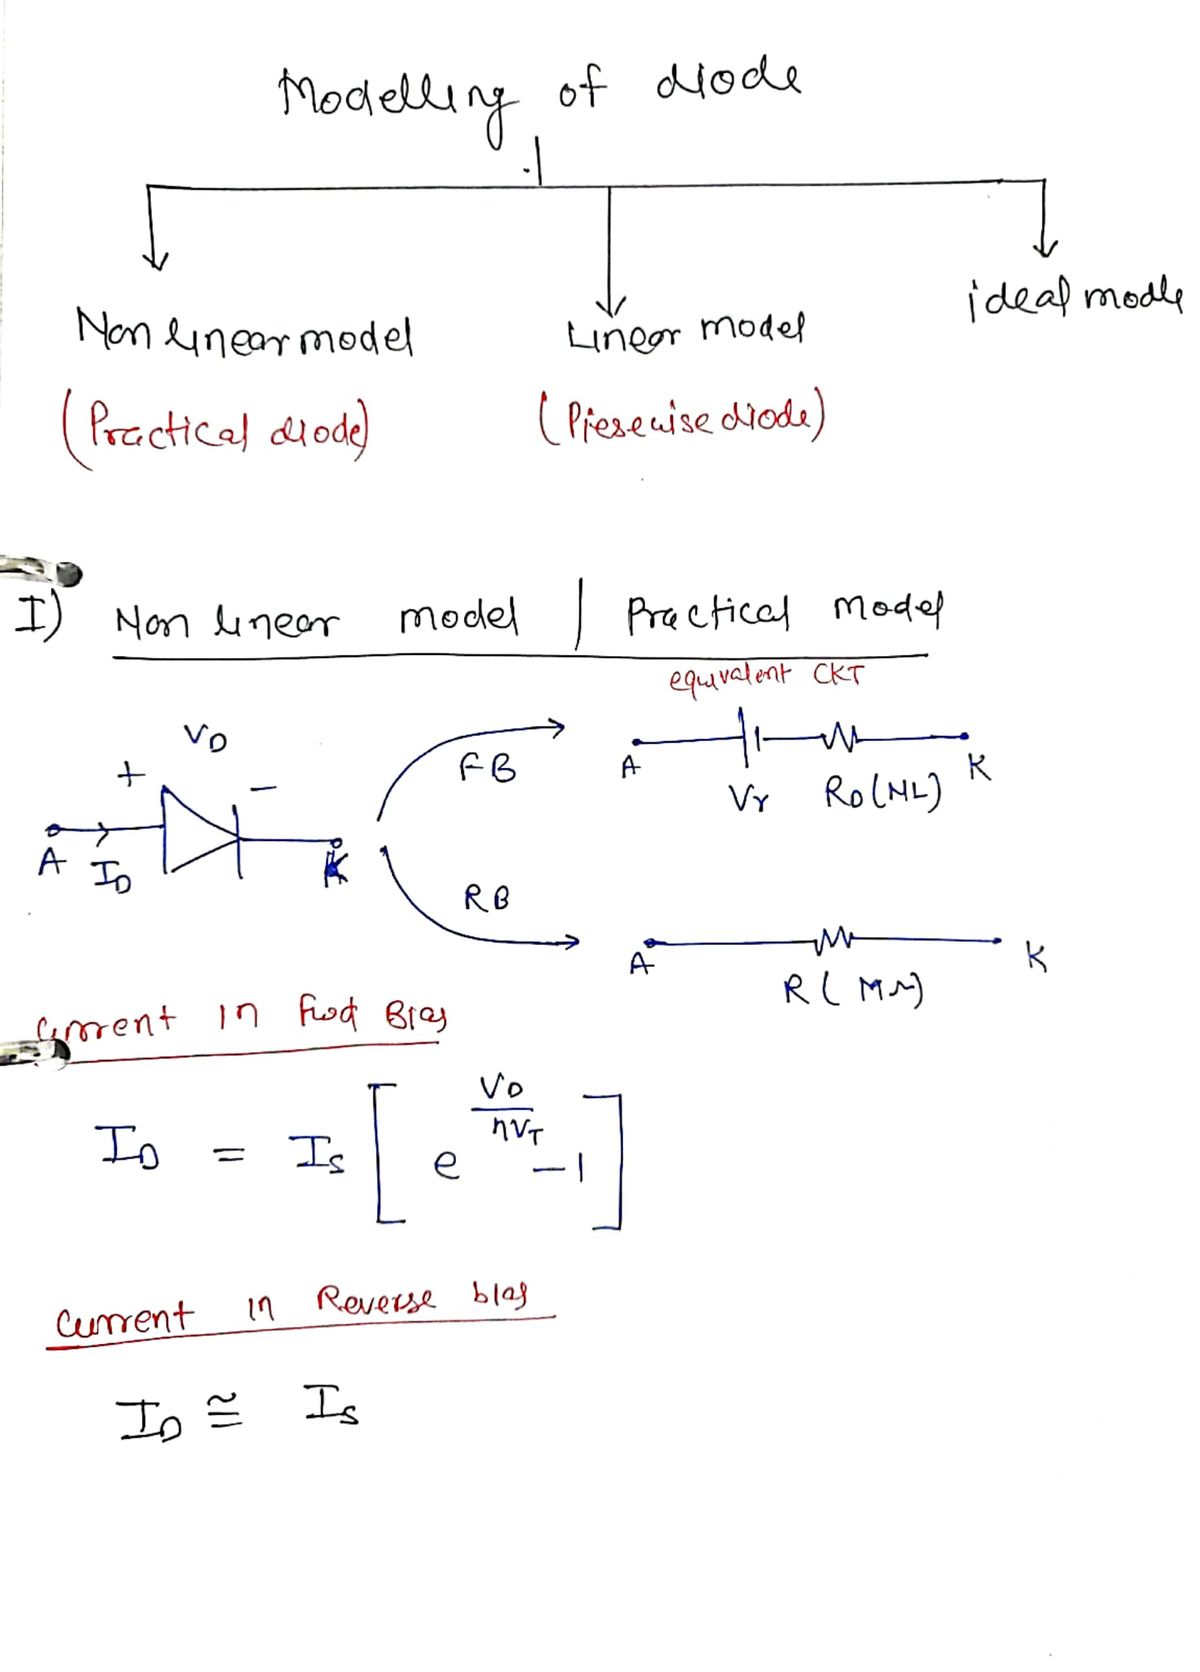 Modelling of diode
Non linear model
Linear model
ideal modle
(Practical diode)
(Piesewise diode)
I) Non linear model | Practical Model
equivalent CKT
VD
+ -
A ID K
FB
A Vr RD(NL) K
RB
A R( MΩ) K
Current in Fwd Bias
ID = IS [ e^(VD/ηVT) -1 ]
Current in Reverse bias
ID ≅ IS